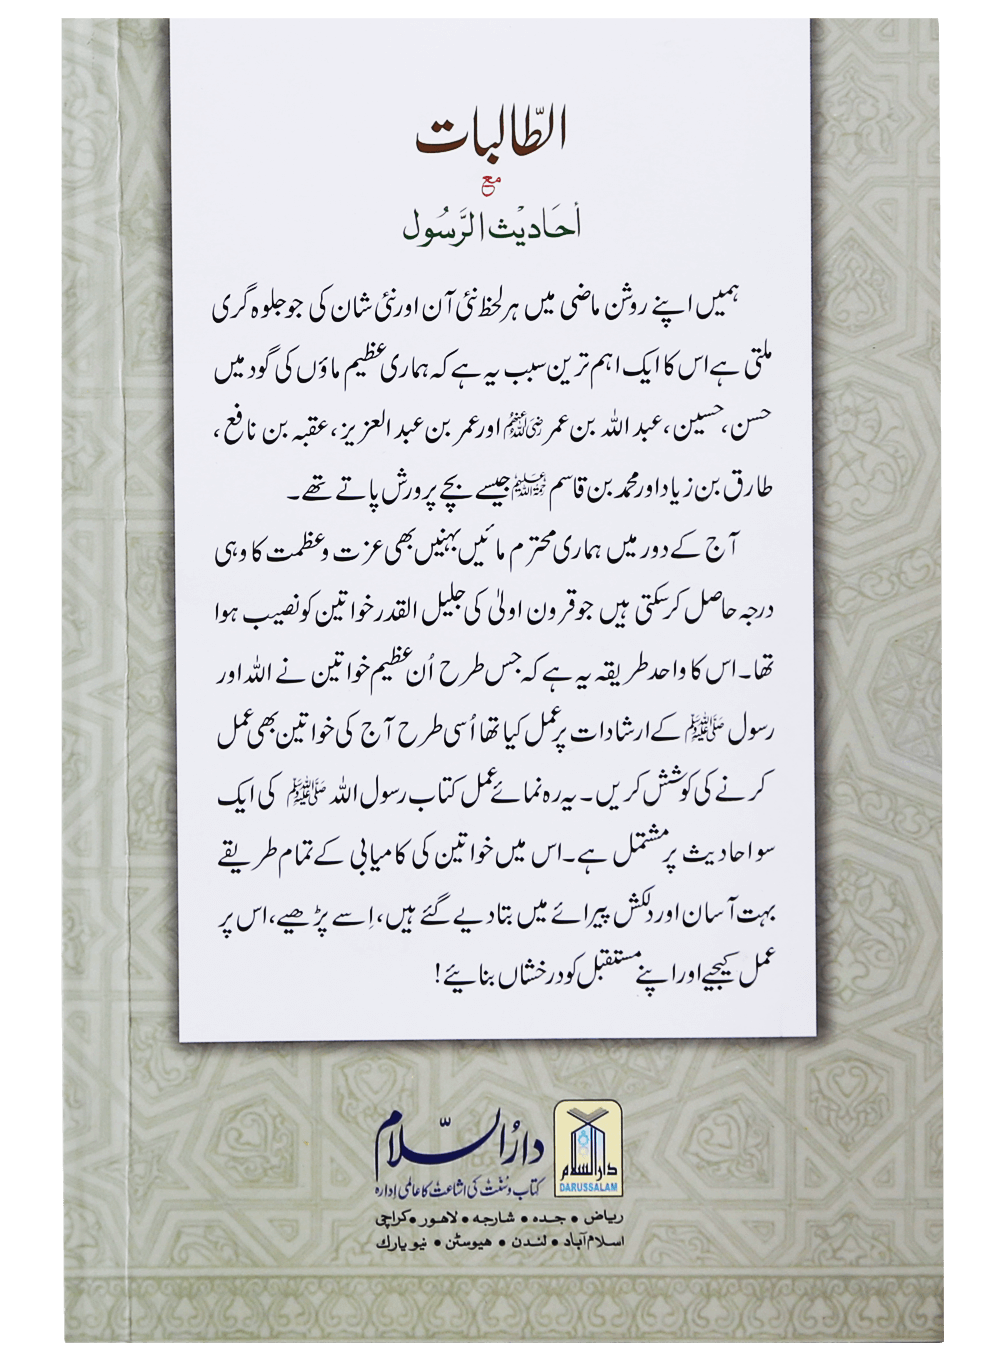 الطّالبات
مع
أحَادیْث الرَّسُول
ہمیں اپنے روشن ماضی میں ہر لحظہ نئی آن اور نئی شان کی جو جلوہ گری
ملتی ہے اس کا ایک اہم ترین سبب یہ ہے کہ ہماری عظیم ماؤں کی گود میں
حسن، حسین، عبد اللہ بن عمر رضی اللہ عنہم اور عمر بن عبد العزیز، عقبہ بن نافع،
طارق بن زیاد اور محمد بن قاسم رحمۃ اللہ علیہم جیسے بچے پرورش پاتے تھے۔
آج کے دور میں ہماری محترم مائیں بہنیں بھی عزت و عظمت کا وہی
درجہ حاصل کرسکتی ہیں جو قرون اولیٰ کی جلیل القدر خواتین کو نصیب ہوا
تھا۔ اس کا واحد طریقہ یہ ہے کہ جس طرح اُن عظیم خواتین نے اللہ اور
رسول ﷺ کے ارشادات پر عمل کیا تھا اُسی طرح آج کی خواتین بھی عمل
کرنے کی کوشش کریں۔ یہ رہ نمائے عمل کتاب رسول اللہ ﷺ کی ایک
سو احادیث پر مشتمل ہے۔ اس میں خواتین کی کامیابی کے تمام طریقے
بہت آسان اور دلکش پیرائے میں بتا دیے گئے ہیں، اِسے پڑھیے، اس پر
عمل کیجیے اور اپنے مستقبل کو درخشاں بنائیے!
دارُالسّلام
کتاب و سُنّت کی اشاعت کا عالمی اِدارہ
دارالسلام
DARUSSALAM
ریاض • جدہ • شارجہ • لاهور • کراچی
اسلام آباد • لندن • هیوسٹن • نیو یارك